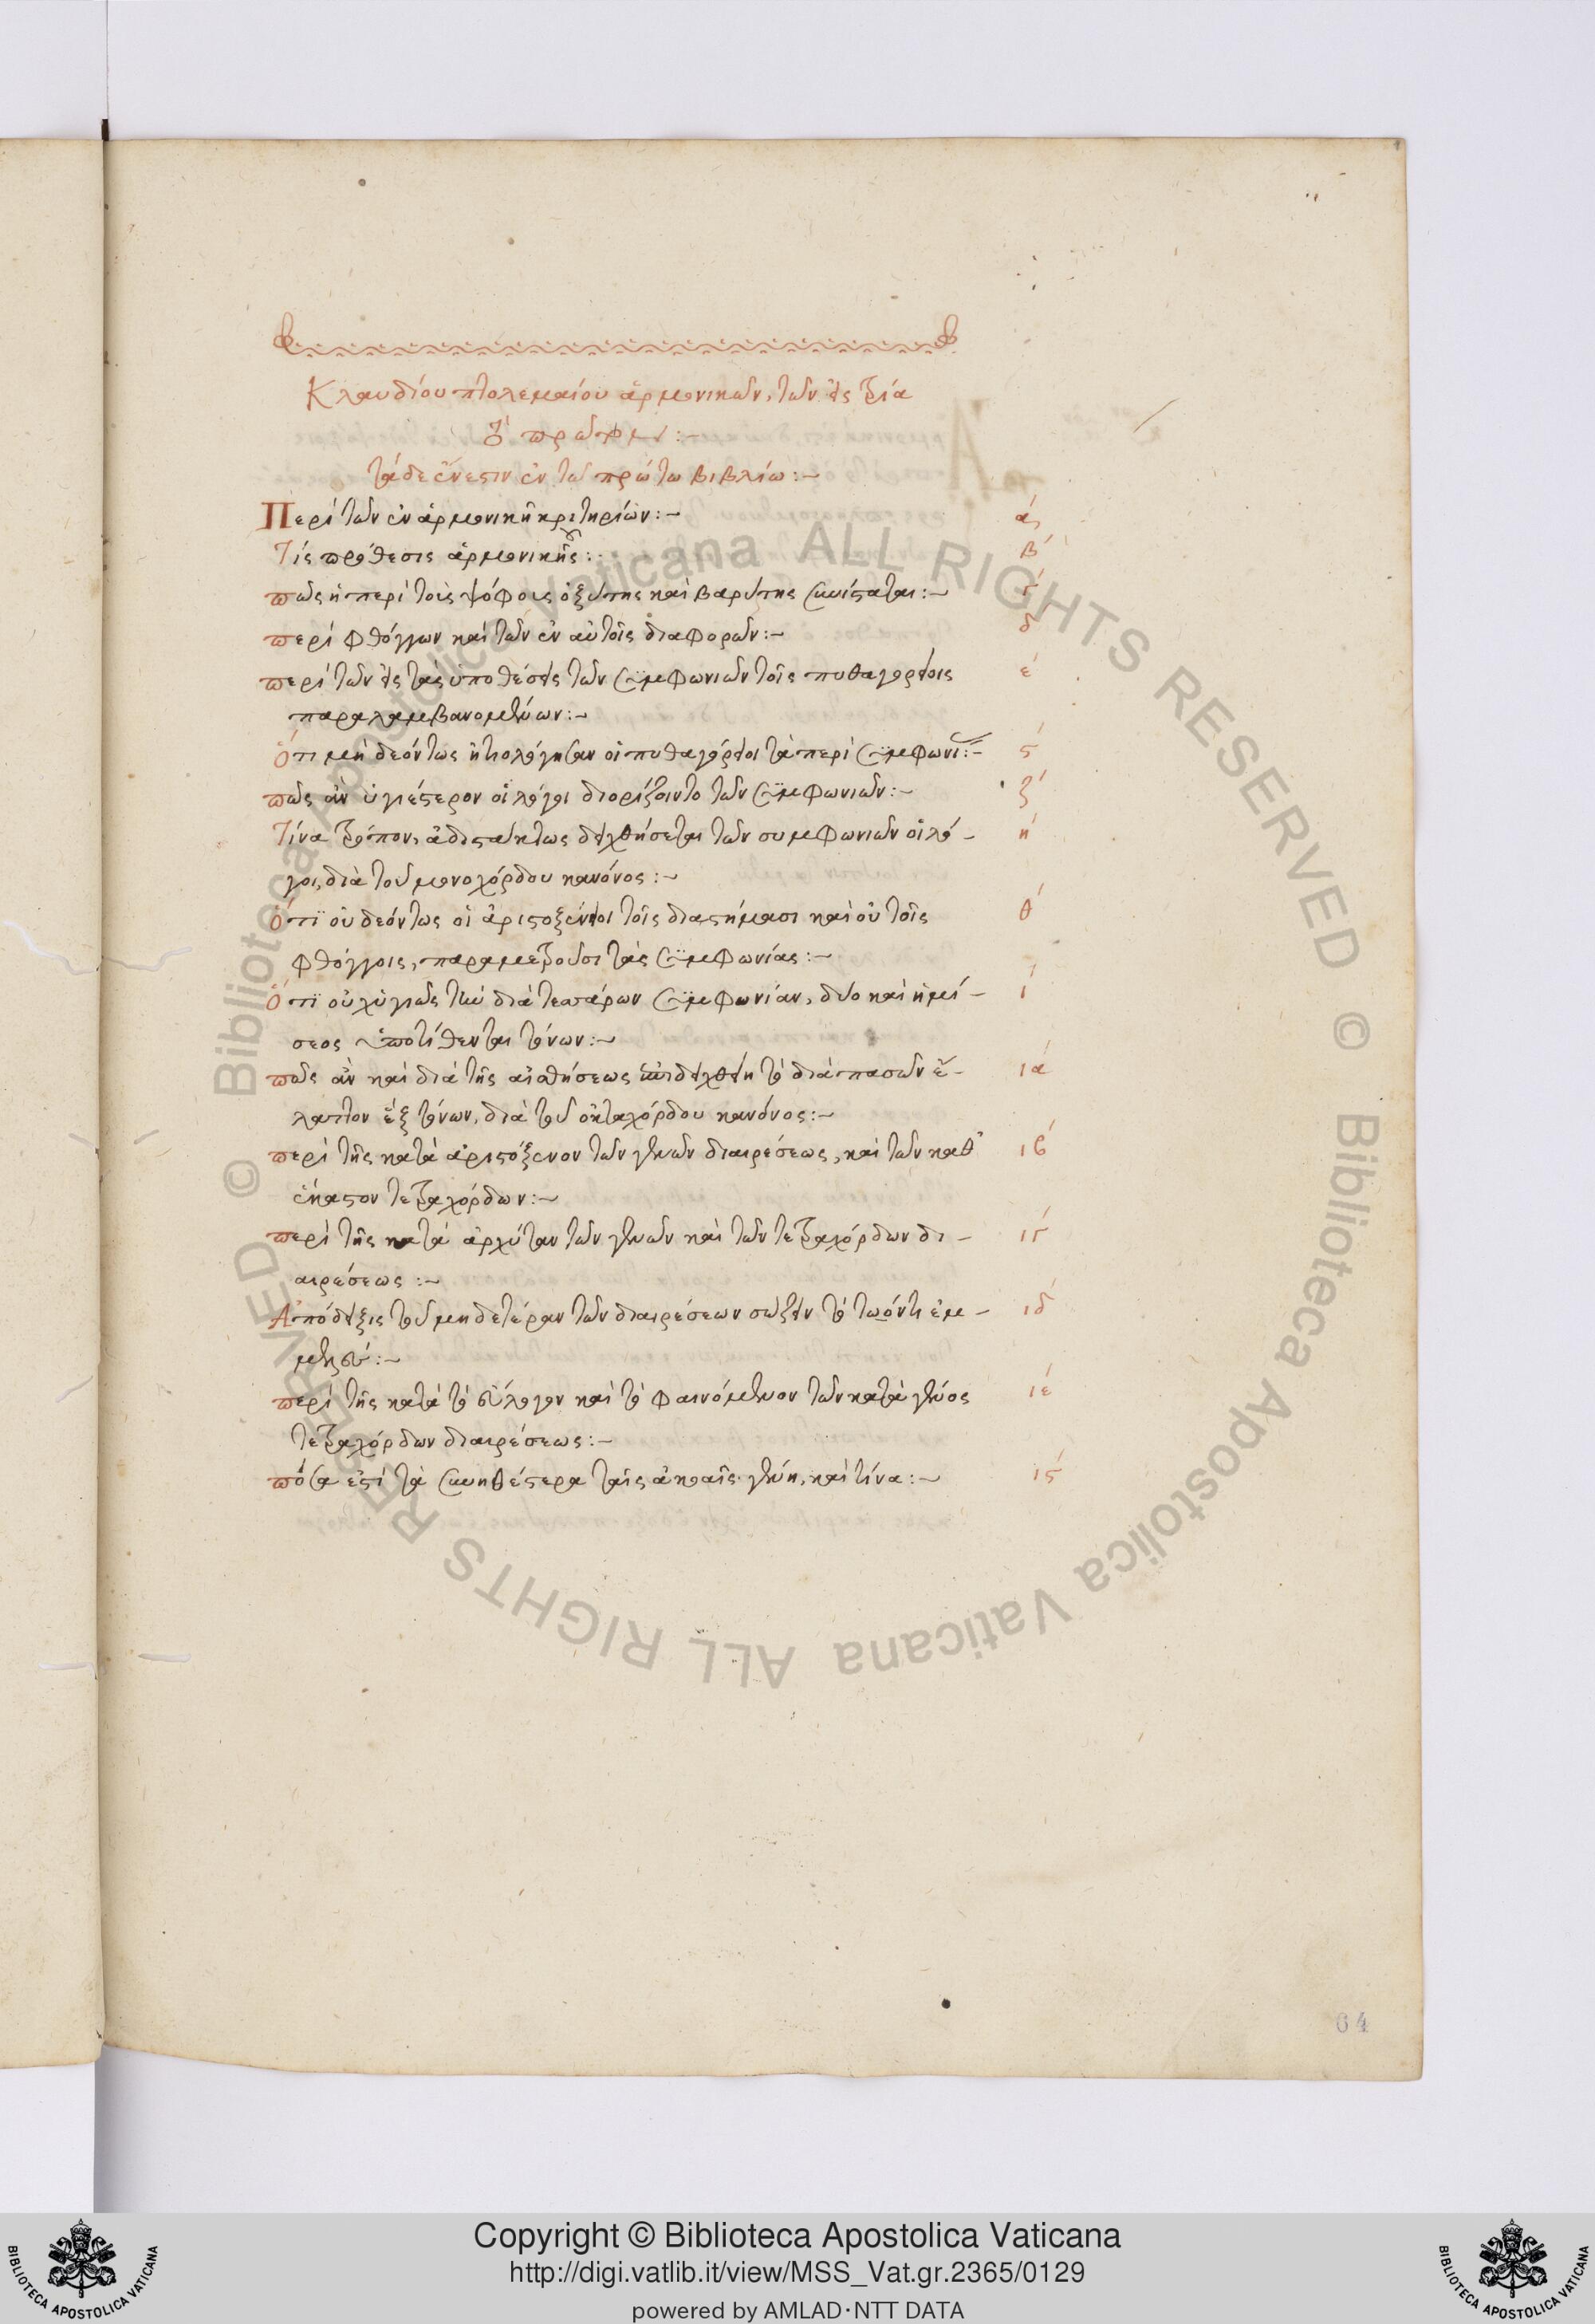 Κλαυδίου πτολεμαίου ἁρμονικῶν, τῶν εἰς τρία
τὸ πρῶτον :~
τάδε ἔνεστιν ἐν τῶ πρώτω βιβλίω :~
Περὶ τῶν ἐν ἁρμονικῆ κριτηρίων :~ α΄
Τίς πρόθεσις ἁρμονικῆς : β΄
πῶς ἡ περὶ τοὺς ψόφους ὀξύτης καὶ βαρύτης συνίσταται :~ γ΄
περὶ φθόγγων καὶ τῶν ἐν αὐτοῖς διαφορῶν :~ δ΄
περὶ τῶν εἰς τὰς ὑποθέσεις τῶν συμφωνιῶν τοῖς πυθαγορείοις ε΄
παραλαμβανομένων :~
Ὅτι μὴ δεόντως ἠτιολόγησαν οἱ πυθαγόρειοι τὰ περὶ συμφωνι :~ ϛ΄
πῶς ἂν ὑγιέστερον οἱ λόγοι διορίζοιντο τῶν συμφωνιῶν :~ ζ΄
Τίνα τρόπον, ἀδιστάκτως δειχθήσεται τῶν συμφωνιῶν οἱ λό- η΄
γοι, διὰ τοῦ μονοχόρδου κανόνος :~
Ὅτι οὐ δεόντως οἱ ἀριστοξένειοι τοῖς διαστήμασι καὶ οὐ τοῖς θ΄
φθόγγοις, παραμετροῦσι τὰς συμφωνίας :~
Ὅτι οὐχ ὑγιῶς τὴν διὰ τεσσάρων συμφωνίαν, δύο καὶ ἡμί- ι΄
σεος ὑποτίθενται τόνων :~
πῶς ἂν καὶ διὰ τῆς αἰσθήσεως ἐπιδειχθείη τὸ διὰ πασῶν ἔ- ια΄
λαττον ἓξ τόνων, διὰ τοῦ ὀκταχόρδου κανόνος :~
περὶ τῆς κατὰ ἀριστόξενον τῶν γενῶν διαιρέσεως, καὶ τῶν καθ᾽ ιβ΄
ἕκαστον τετραχόρδων :~
περὶ τῆς κατὰ ἀρχύταν τῶν γενῶν καὶ τῶν τετραχόρδων δι- ιγ΄
αιρέσεως :~
Ἀπόδειξις τοῦ μηδετέραν τῶν διαιρέσεων σώζειν τὸ τωόντι ἐμ- ιδ΄
μελές :~
περὶ τῆς κατὰ τὸ εὔλογον καὶ τὸ φαινόμενον τῶν κατὰ γένος ιε΄
τετραχόρδων διαιρέσεως :~
πόσα ἐστὶ τὰ συνηθέστερα ταῖς ἀκοαῖς γένη, καὶ τίνα :~ ιϛ΄
64
© Biblioteca Apostolica Vaticana ALL RIGHTS RESERVED
© Biblioteca Apostolica Vaticana ALL RIGHTS RESERVED
Copyright © Biblioteca Apostolica Vaticana
http://digi.vatlib.it/view/MSS_Vat.gr.2365/0129
powered by AMLAD·NTT DATA
BIBLIOTECA APOSTOLICA VATICANA
BIBLIOTECA APOSTOLICA VATICANA